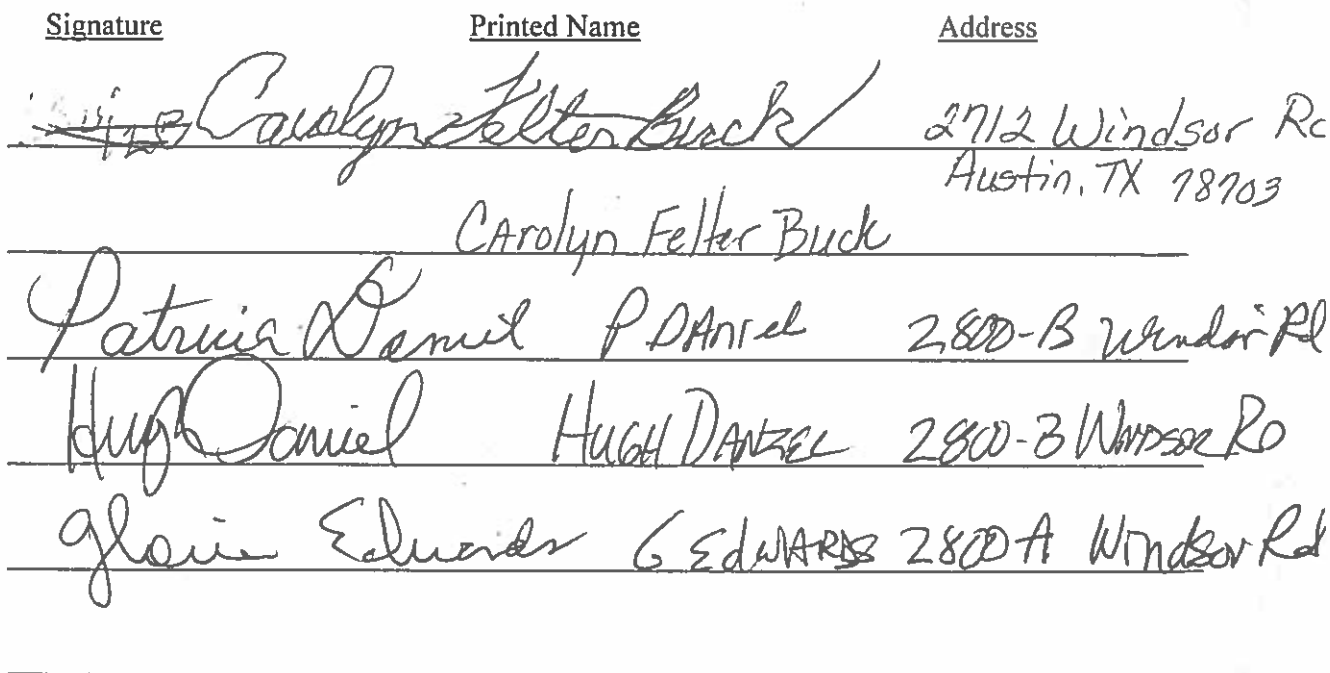 Signature Printed Name Address
Carolyn Felter Buck 2712 Windsor Rd
Austin, TX 78703
Carolyn Felter Buck
Patricia Daniel P Daniel 2800-B Windsor Rd
Hugh Daniel HUGH DANIEL 2800-B WINDSOR RD
Edwards G EdWARDS 2800 A Windsor Rd